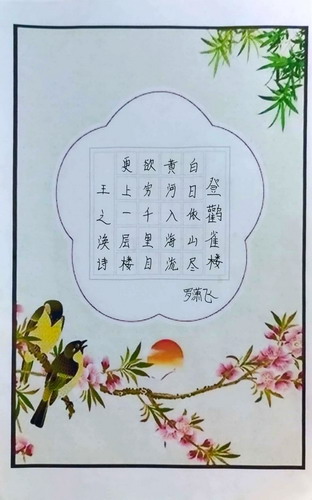 登鹳雀楼
白日依山尽
黄河入海流
欲穷千里目
更上一层楼
王之涣诗
罗萧飞